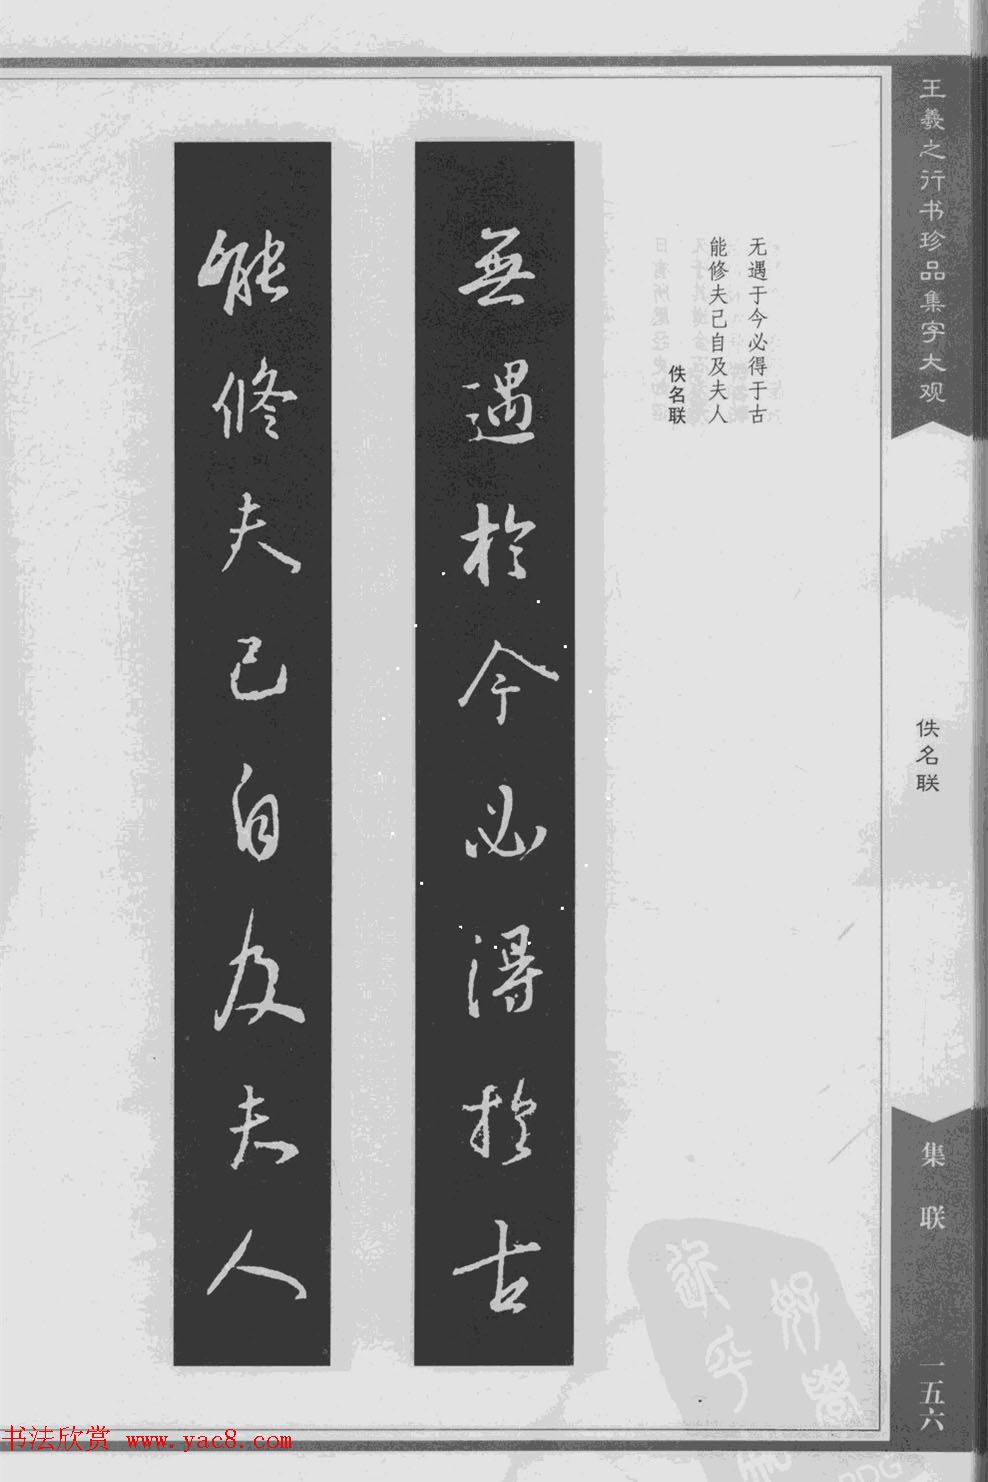 王羲之行书珍品集字大观
佚名联
集联
一五六
无遇于今必得于古
能修夫己自及夫人
佚名联
無遇於今必得於古
能修夫己自及夫人
书法欣赏 www.yac8.com